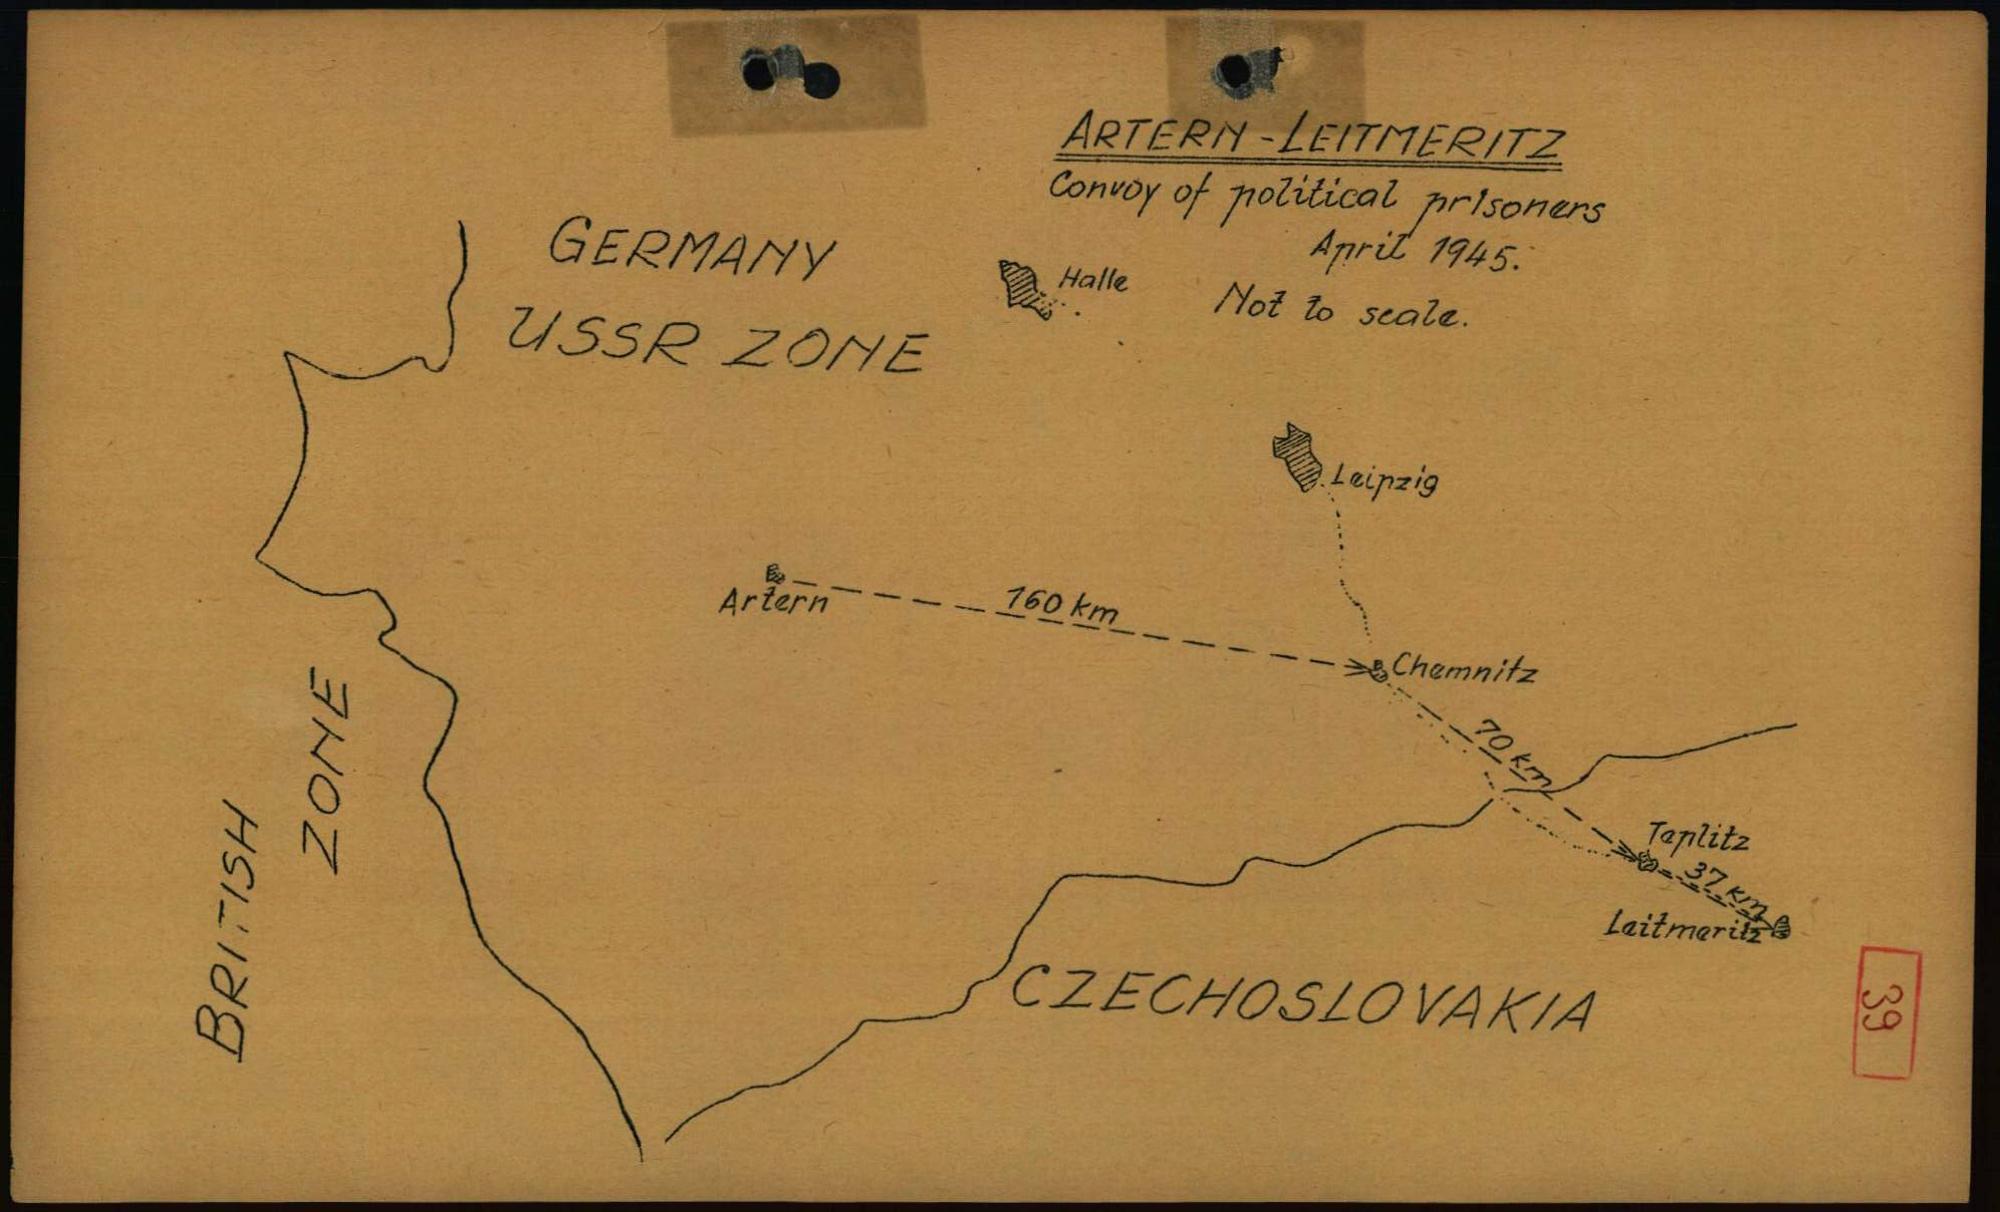 ARTERN - LEITMERITZ
Convoy of political prisoners
April 1945.
Not to scale.
GERMANY
USSR ZONE
Halle
Leipzig
Artern
160 km
Chemnitz
70 km
Teplitz
37 km
Leitmeritz
BRITISH
ZONE
CZECHOSLOVAKIA
39